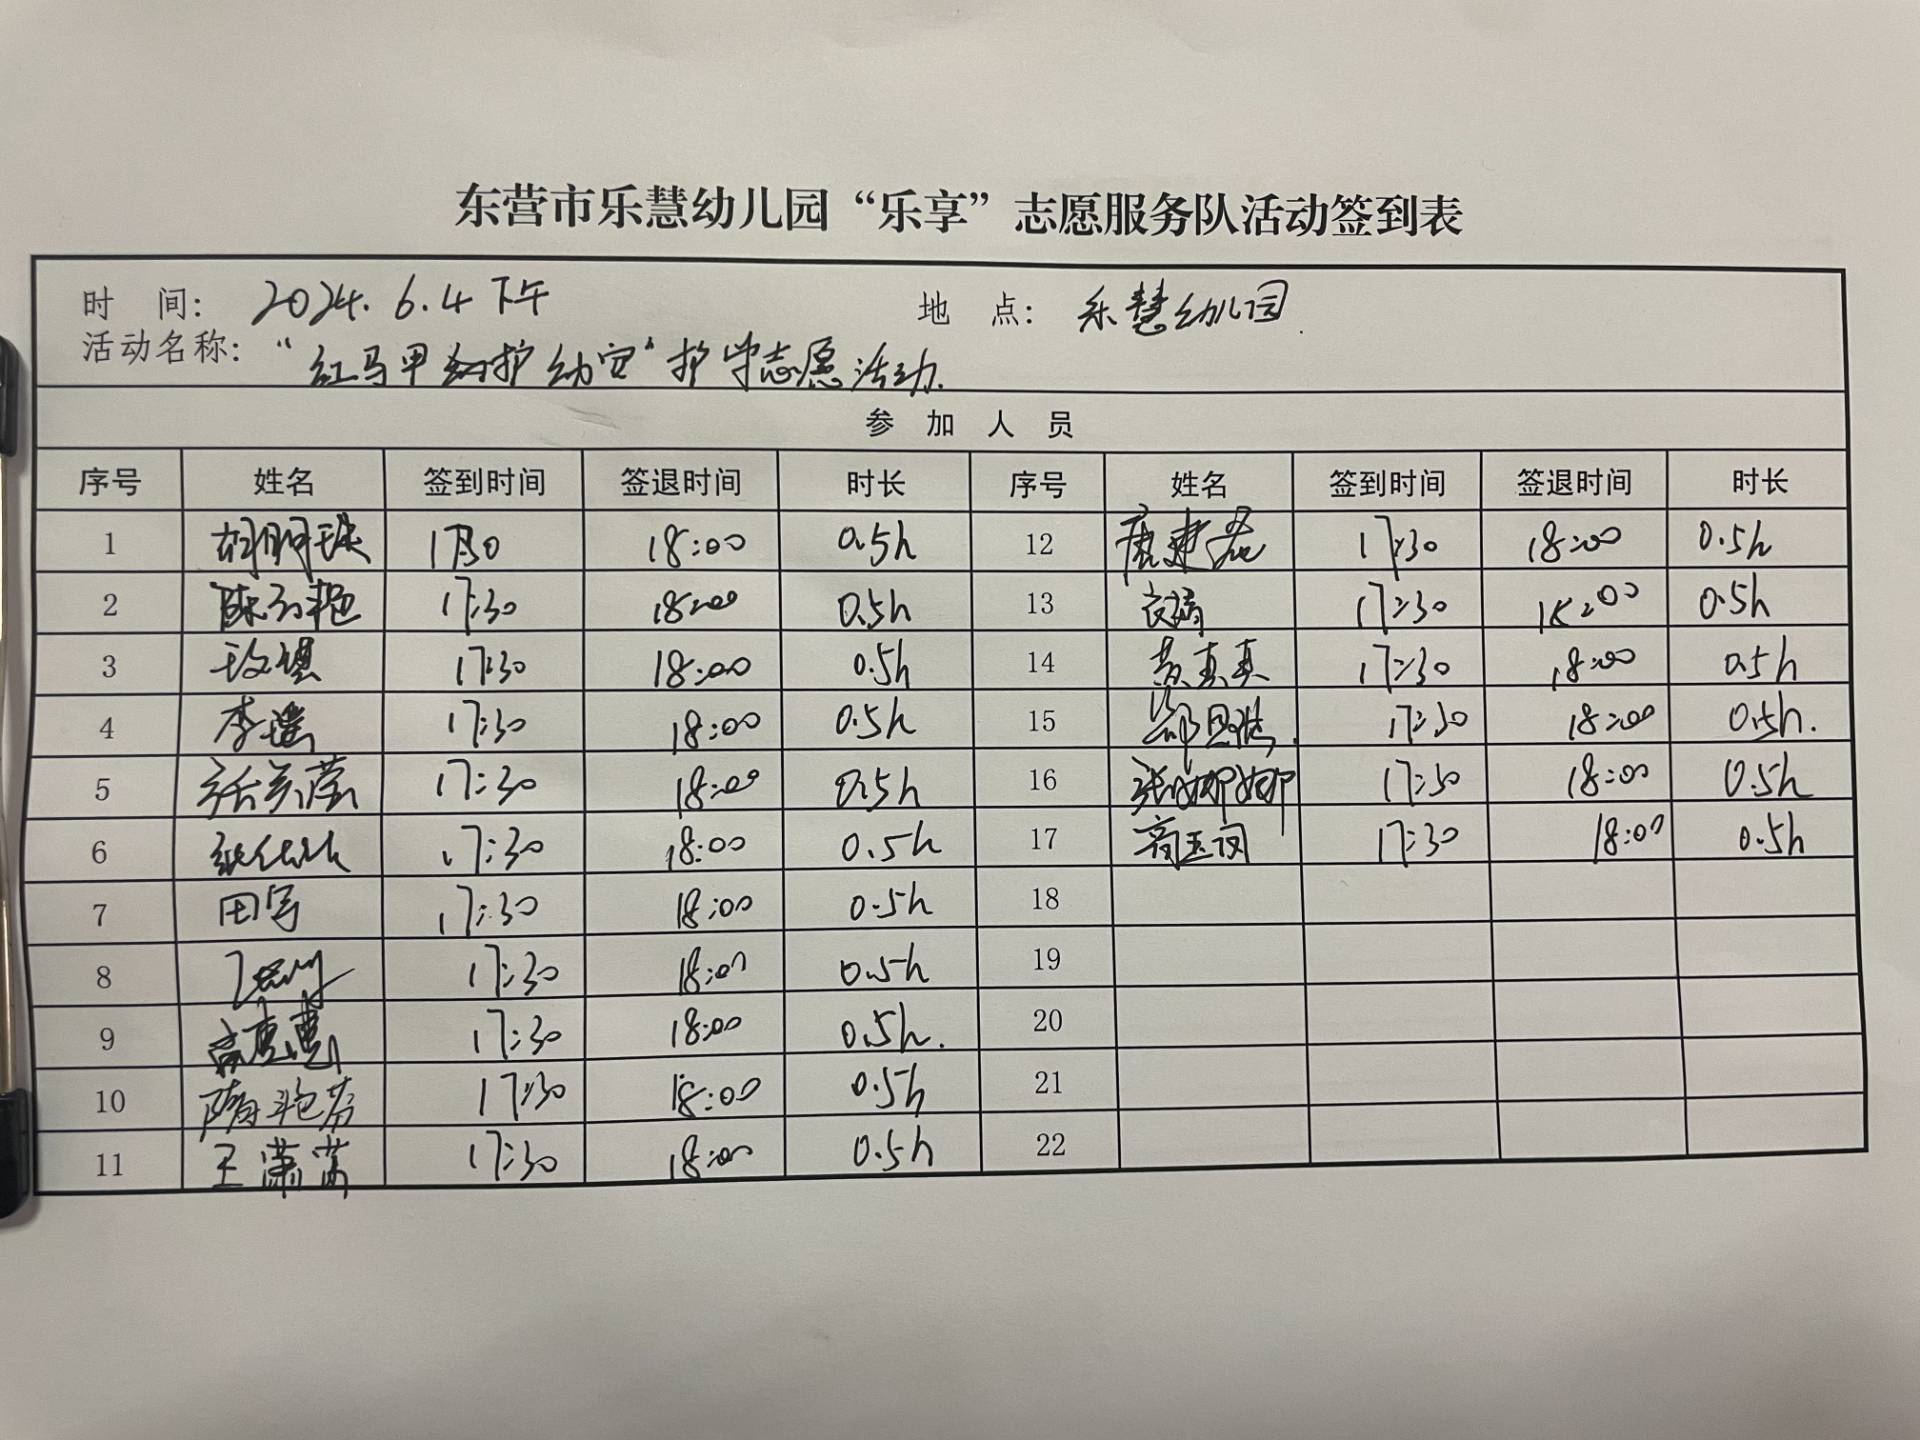 东营市乐慧幼儿园“乐享”志愿服务队活动签到表
时 间: 2024.6.4下午 地 点: 乐慧幼儿园.
活动名称: “红马甲 护幼安”护学志愿活动.
参 加 人 员
序号 姓名 签到时间 签退时间 时长 序号 姓名 签到时间 签退时间 时长
1 17:30 18:00 0.5h 12 17:30 18:00 0.5h
2 17:30 18:00 0.5h 13 17:30 18:00 0.5h
3 17:30 18:00 0.5h 14 黄真真 17:30 18:00 0.5h
4 李瑶 17:30 18:00 0.5h 15 17:30 18:00 0.5h.
5 17:30 18:00 0.5h 16 张娜娜 17:30 18:00 0.5h
6 17:30 18:00 0.5h 17 17:30 18:00 0.5h
7 田写 17:30 18:00 0.5h 18
8 17:30 18:00 0.5h 19
9 17:30 18:00 0.5h. 20
10 隋艳芬 17:30 18:00 0.5h 21
11 王潇 17:30 18:00 0.5h 22